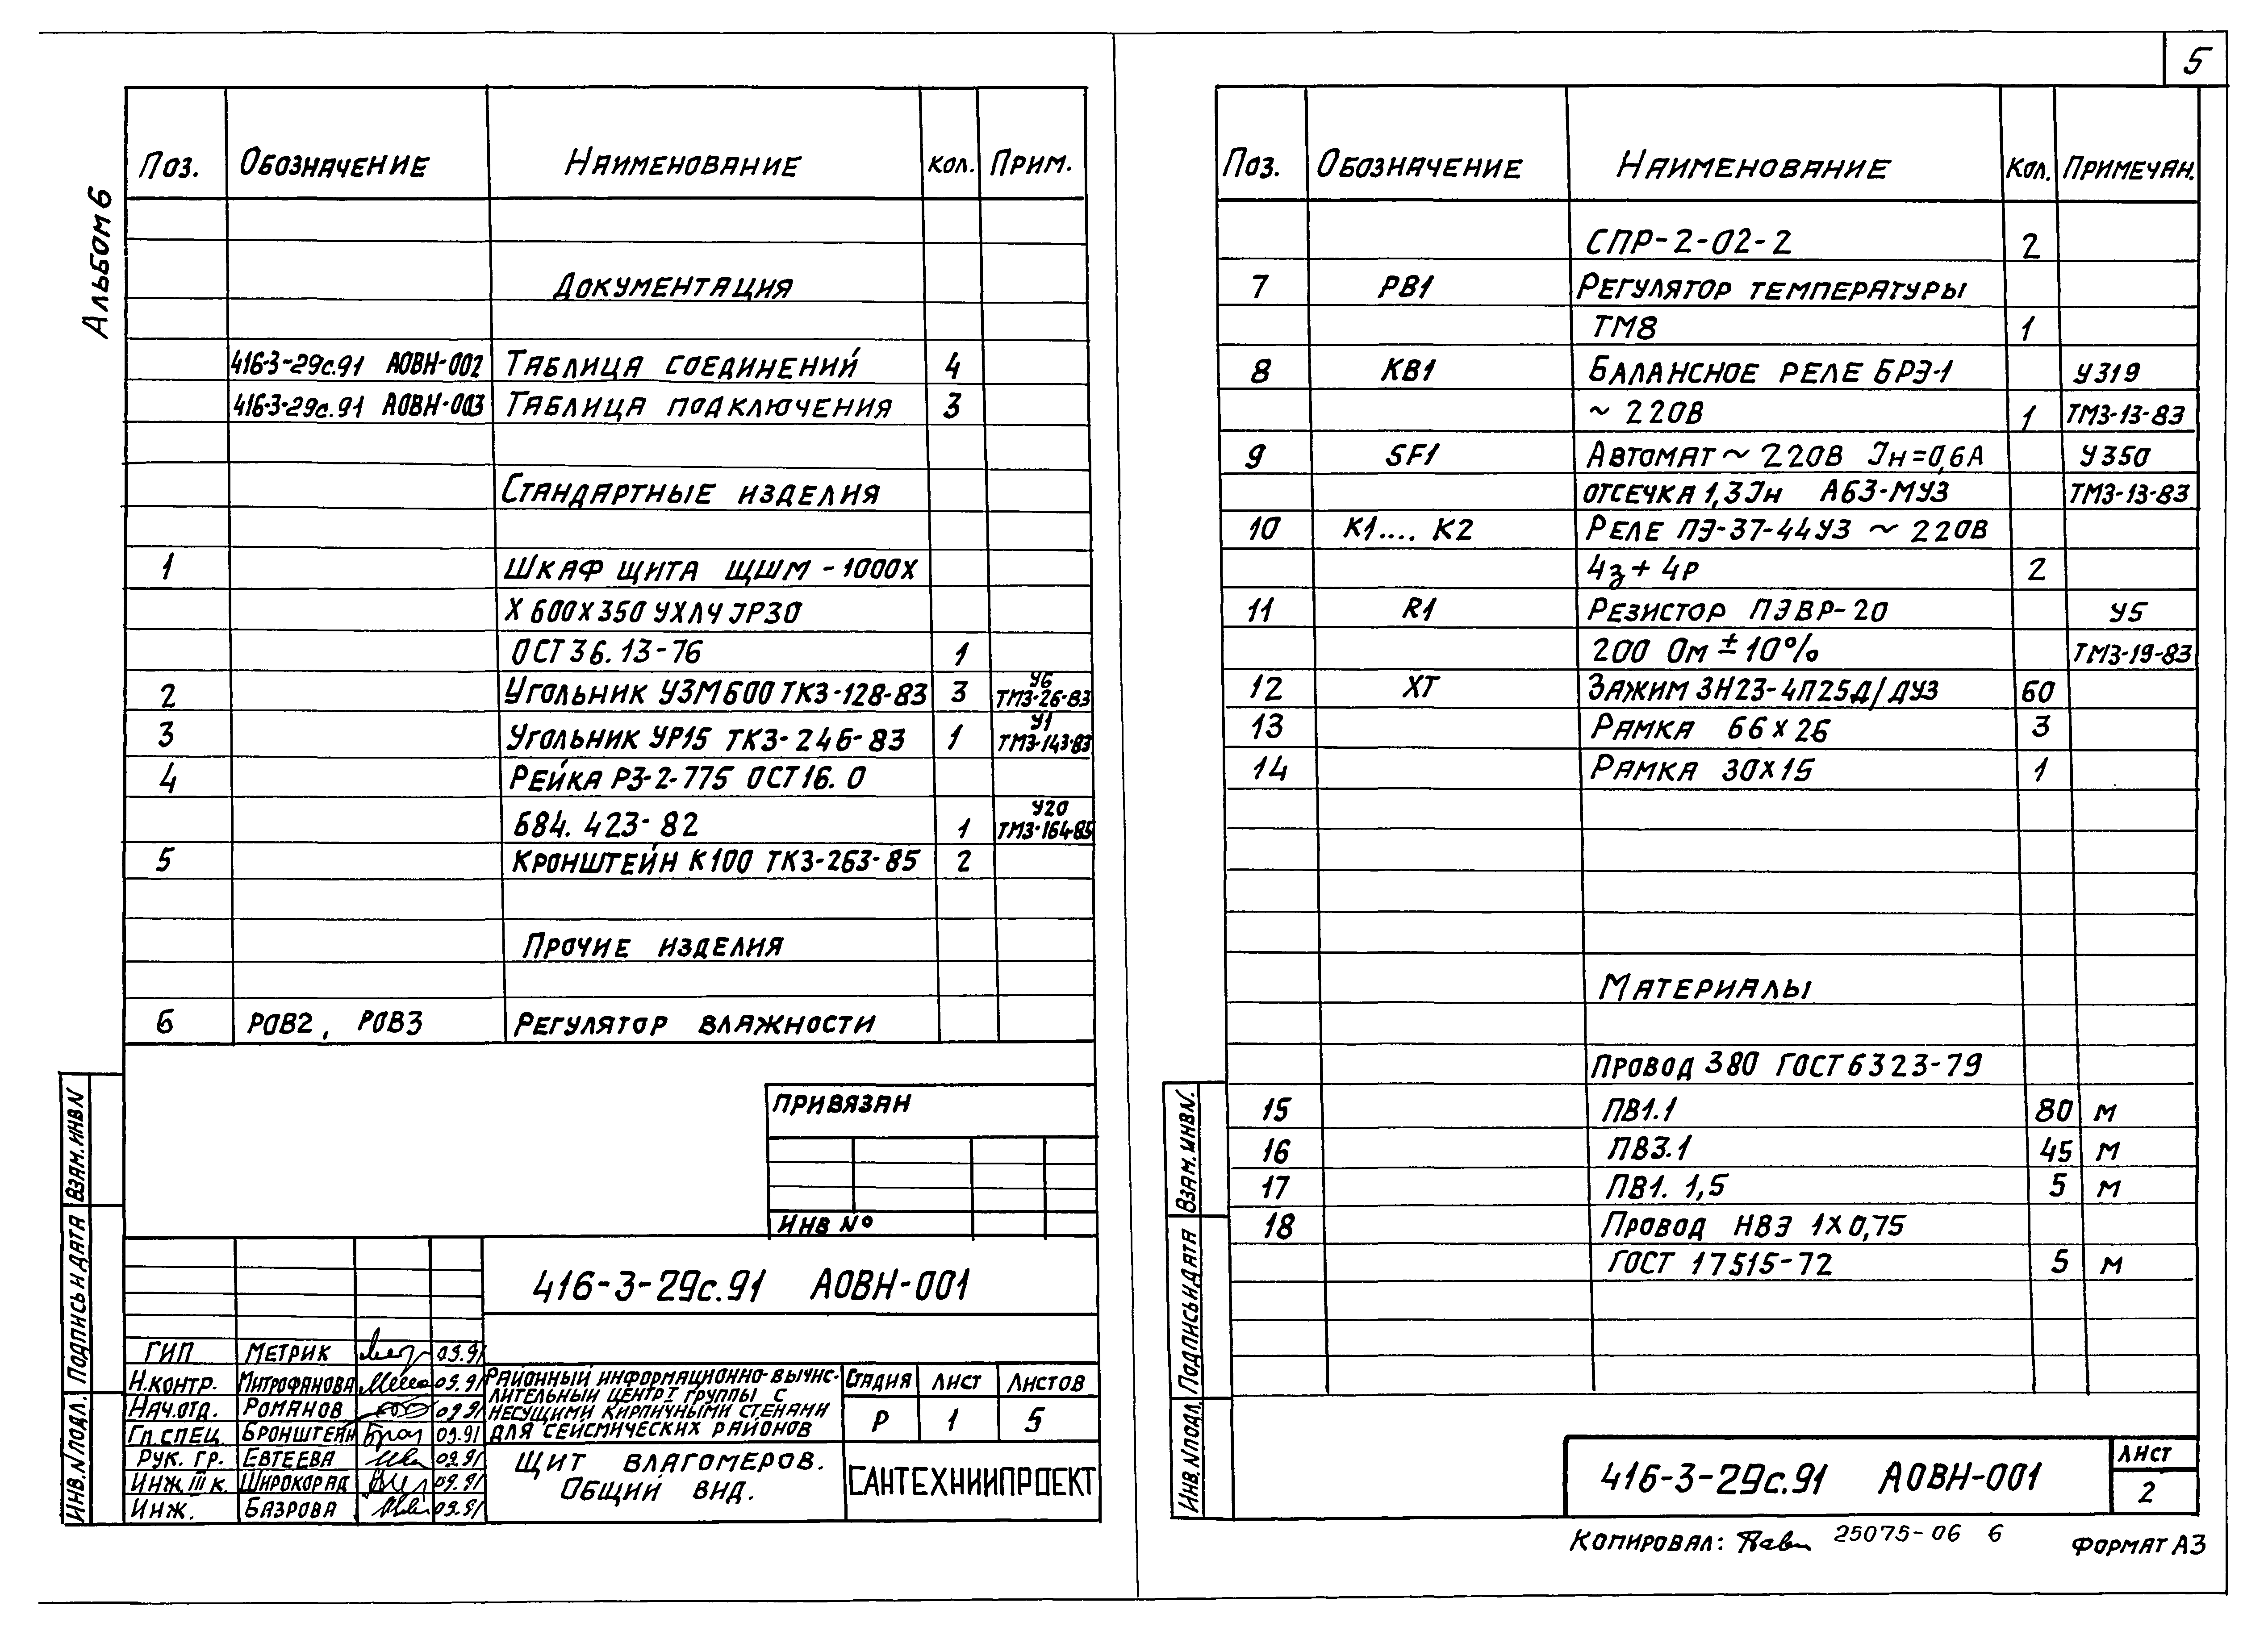 5
Альбом 6
Поз. Обозначение Наименование Кол. Прим.
Документация
416-3-29с.91 АОВН-002 Таблица соединений 4
416-3-29с.91 АОВН-003 Таблица подключения 3
Стандартные изделия
1 Шкаф щита ЩШМ-1000х
х 600х350 УХЛ4 IP30
ОСТ 36.13-76 1
2 Угольник УЗМ600 ТК3-128-83 3 У6 ТМ3-26-83
3 Угольник УР15 ТК3-246-83 1 У1 ТМ3-143-83
4 Рейка РЗ-2-775 ОСТ16.0
684.423-82 1 У20 ТМ3-164-85
5 Кронштейн К100 ТК3-263-85 2
Прочие изделия
6 РОВ2, РОВ3 Регулятор влажности
Привязан
Инв №
416-3-29с.91 АОВН-001
ГИП Метрик 09.91
Н.контр. Митрофанова 09.91
Нач.отд. Романов 09.91
Гл.спец. Бронштейн 09.91
Рук. гр. Евтеева 09.91
Инж III к. Широкорад 09.91
Инж. Базрова 09.91
Районный информационно-вычис-
лительный центр I группы с
несущими кирпичными стенами
для сейсмических районов
Стадия Лист Листов
Р 1 5
Щит влагомеров.
Общий вид.
САНТЕХНИИПРОЕКТ
Инв.N подл. Подпись и дата Взам.инв N
Поз. Обозначение Наименование Кол. Примечан.
СПР-2-02-2 2
7 РВ1 Регулятор температуры
ТМ8 1
8 КВ1 Балансное реле БРЭ-1 У319
~ 220В 1 ТМ3-13-83
9 SF1 Автомат ~ 220В Iн=0,6А У350
отсечка 1,3Iн А63-МУЗ ТМ3-13-83
10 К1.... К2 Реле ПЭ-37-44У3 ~ 220В
4з + 4р 2
11 R1 Резистор ПЭВР-20 У5
200 Ом ± 10% ТМ3-19-83
12 ХТ Зажим ЗН23-4П25Д/ДУ3 60
13 Рамка 66х26 3
14 Рамка 30х15 1
Материалы
Провод 380 ГОСТ 6323-79
15 ПВ1.1 80 м
16 ПВ3.1 45 м
17 ПВ1. 1,5 5 м
18 Провод НВЭ 1х0,75
ГОСТ 17515-72 5 м
Инв.N подл. Подпись и дата Взам.инв N.
416-3-29с.91 АОВН-001
Лист
2
Копировал: 25075-06 6 Формат А3